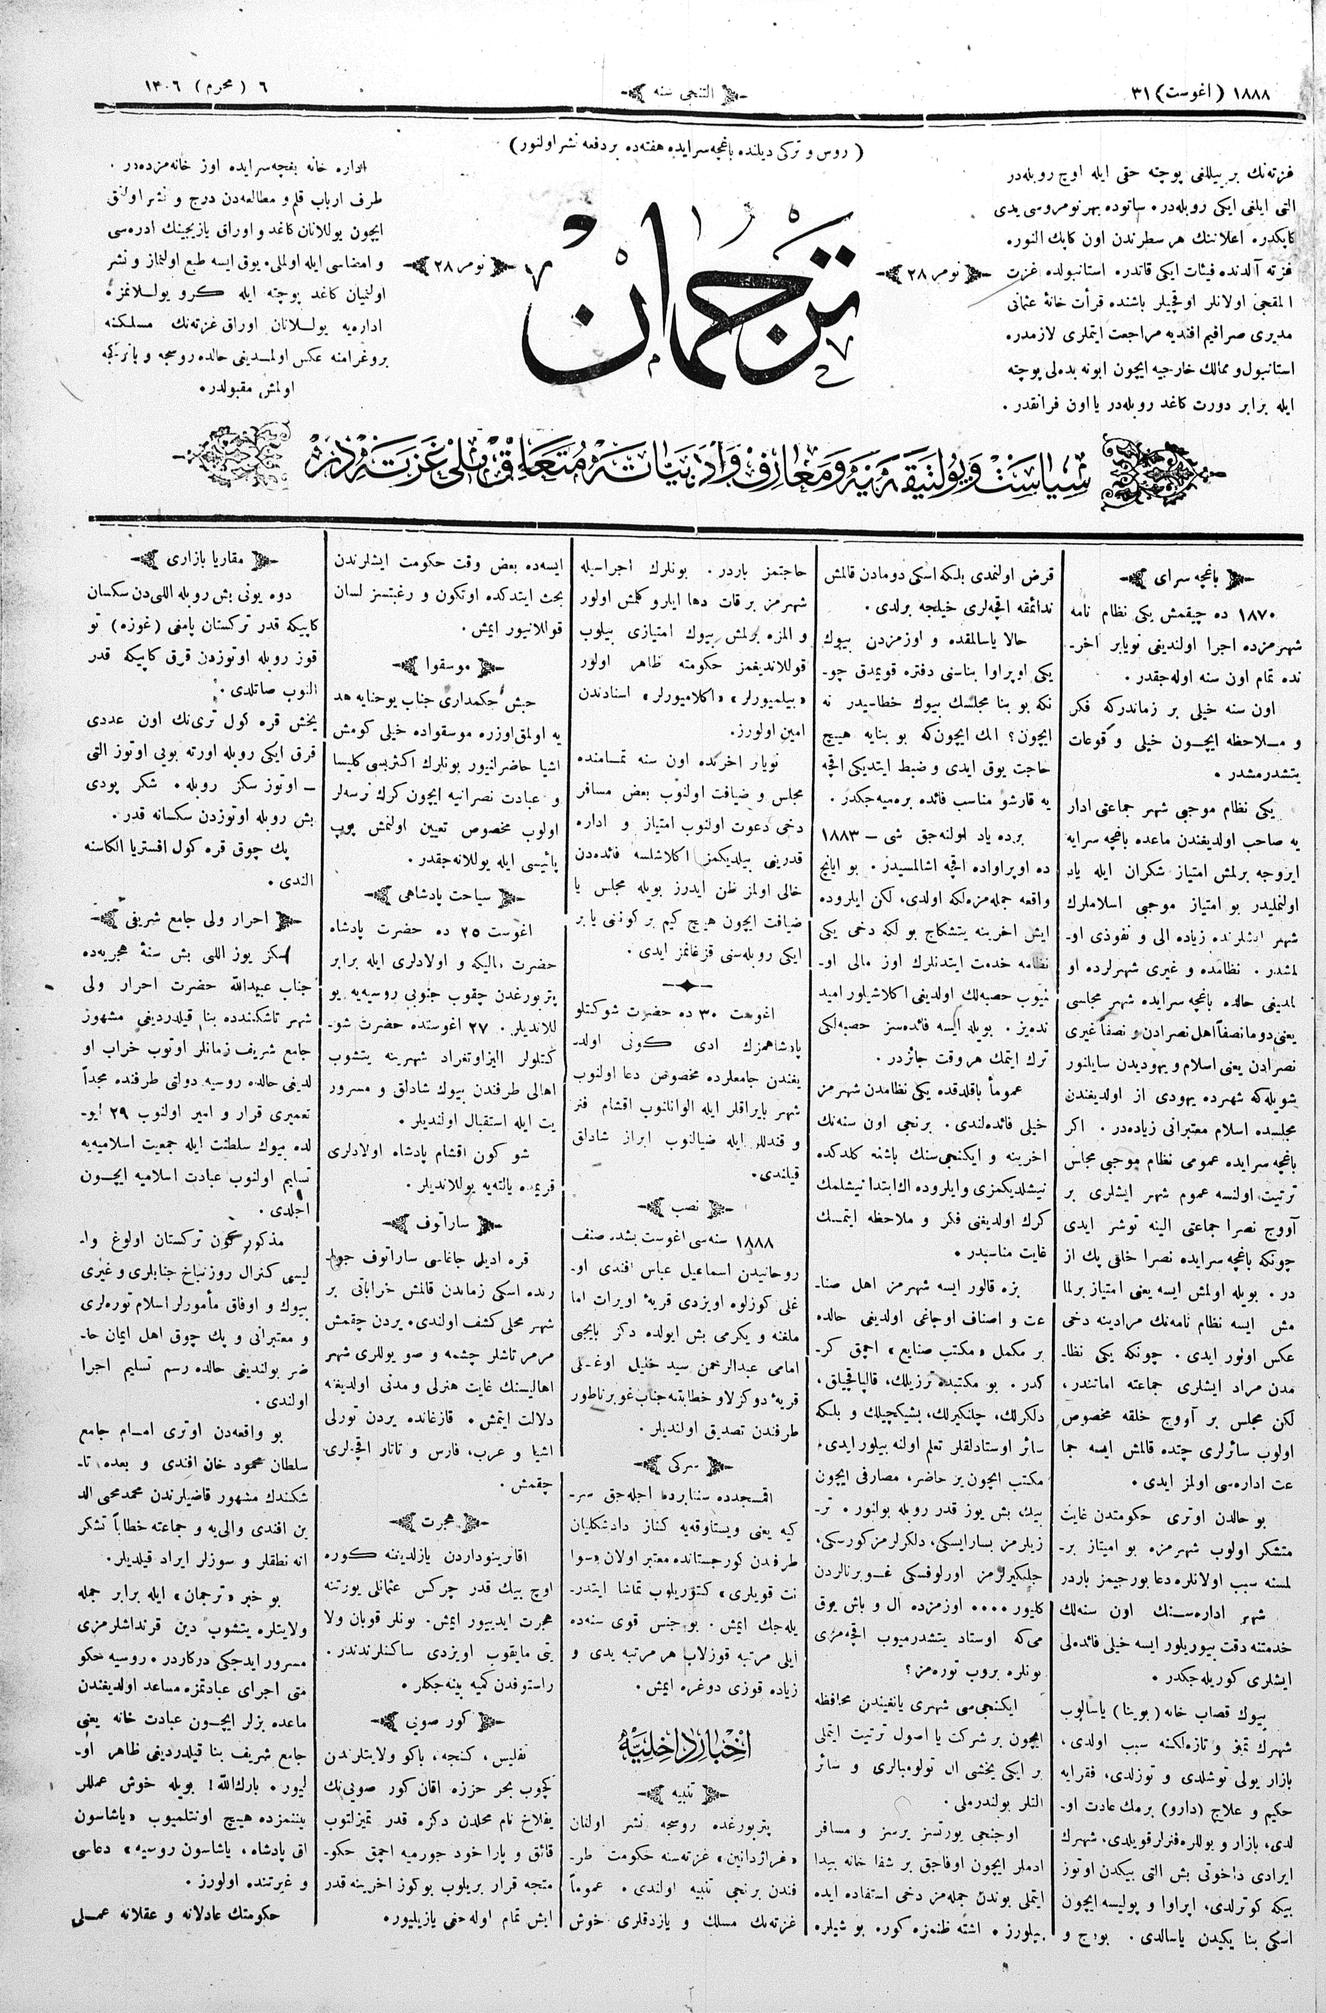 ١٨٨٨ (اغوست) ٣١
التنجی سنه
٦ (محرم) ١٣٠٦
(روس و ترکی دیلنده باغچه‌سرایده هفته‌ده بر دفعه نشر اولنور)
غزته‌نك بر ییللغی پوچته حقی ایله اوچ روبله‌در
التی ایلغی ایکی روبله‌در. ساتوده بهر نومروسی یدی
کاپکدر. اعلاننك هر سطرندن اون کاپك النور.
غزته آلدنده فیئات ایکی قاتدره. استانبولده غزت
المقجی اولانلر اوقجیلر باشنده قرأت خانهٔ عثمانی
مدیری صرافیم افندیه مراجعت ایتملری لازمدره
استانبول و ممالك خارجیه ایچون ابونه بدلی پوچته
ایله برابر دورت کاغد روبله‌در یا اون فرانقدر.
نومر ٢٨
ترجمان
نومر ٢٨
اداره خانه بغچه سرایده اوز خانه‌مزده‌در.
طرف ارباب قلم و مطالعه‌دن درج و نشر اولنق
ایچون یوللانان کاغد و اوراق یازیجینك ادره‌سی
و امضاسی ایله اولملی. یوق ایسه طبع اولنماز و نشر
اولنمیان کاغد پوچته ایله کرو یوللانمز.
اداره‌یه یوللانان اوراق غزته‌نك مسلکنه
بروغرامنه عکس اولمدیغی حالده روسجه و یا ترکجه
اولمش مقبولدر.
سیاست و پولتیقه مدنیه و معارف و ادبیاته متعلق ملی غزته‌در
باغچه سرای
١٨٧٠ ده چیقمش یکی نظام نامه
شهرمزده اجرا اولندیغی نویابر اخر-
نده تمام اون سنه اوله‌جقدر.
اون سنه خیلی بر زماندرکه فکر
و ملاحظه ایچون خیلی و قوعات
یتشدرمشدر.
یکی نظام موجبی شهر جماعتی ادار
یه صاحب اولدیغندن ماعده باغچه سرایه
ایروجه برلمش امتیاز شکران ایله یاد
اولنملیدر بو امتیاز موجبی اسلاملرك
شهر ایشلرنده زیاده الی و نفوذی او-
لمشدر. نظامده و غیری شهرلرده او
لمدیغی حالده باغچه سرایده شهر مجلسی
یعنی دوما نصفاً اهل نصرادن و نصفاً غیری
نصرادن یعنی اسلام و یهودیدن سایلنور
شویله‌که شهرده یهودی از اولدیغندن
مجلسده اسلام معتبرانی زیاده‌در. اکر
باغچه سرایده عمومی نظام موجبی مجلس
ترتیت اولنسه عموم شهر ایشلری بر
آووج نصرا جماعتی الینه توشر ایدی
چونکه باغچه سرایده نصرا خلقی پك از
در. بویله اولمش ایسه یعنی امتیاز برلما
مش ایسه نظام نامه‌نك مرادینه دخی
عکس اولنور ایدی. چونکه یکی نظا-
مدن مراد ایشلری جماعته اماتندر،
لکن مجلس بر آووج خلقه مخصوص
اولوب سائرلری چتده قالمش ایسه جما
عت اداره‌سی اولمز ایدی.
بو حالدن اوتری حکومتدن غایت
متشکر اولوب شهرمزه بو امیتاز بر-
لمسنه سبب اولانلره دعا بورجیمز باردر
شهر اداره‌سنك اون سنه‌لك
خدمتنه دقت بیوریلور ایسه خیلی فائده‌لی
ایشلری کوریله‌جکدر.
بیوك قصاب خانه (بوینا) یاسالوب
شهرك تمیز و تازه‌لکنه سبب اولدی،
بازار یولی توشلدی و توزلدی، فقرایه
حکیم و علاج (دارو) برمك عادت او-
لدی، بازار و یوللره فنرلر قویلدی، شهرك
ایرادی داخوتی بش التی بیکدن اوتوز
بیکه کوترلدی، اپراوا و پولیسه ایچون
اسکی بنا یکیدن یاسالدی. بورج و
قرض اولنمدی بلکه اسکی دومادن قالمش
ندائمقه اقچه‌لری خیلیجه برلدی.
حالا یاسالمقده و اوزمزدن بیوك
یکی اوپراوا بناسنی دفتره قویمدق چو-
نکه بو بنا مجلسك بیوك خطاسیدر نه
ایچون؟ انك ایچونکه بو بنایه هیچ
حاجت یوق ایدی و ضبط ایتدیکی اقچه
یه قارشو مناسب فائده بره‌میه‌جکدر.
برده یاد اولنه‌جق شی — ١٨٨٣
ده اوپراواده اقچه اشالمسیدز. بو ایانچ
واقعه جمله‌مزه‌لکه اولدی، لکن ایلروده
ایش اخرینه یتشکاج بو لکه دخی یکی
نظامه خدمت ایتدنلرك اوز مالی او-
لمیوب حصه‌لك اولدیغی اکلاشیلور امید
نده‌یز. بویله ایسه فائده‌سز حصه‌لکی
ترك ایتمك هر وقت جائزدر.
عموماً باقلدقده یکی نظامدن شهرمز
خیلی فائده‌لندی. برنجی اون سنه‌نك
اخرینه و ایکنجی‌سنك باشنه کلدکده
نیشلدیکمزی و ایلروده اك ابتدا نیشلمك
کرك اولدیغنی فکر و ملاحظه ایتمك
غایت مناسبدر.
بزه قالور ایسه شهرمز اهل صنا-
عت و اصناف اوجاغی اولدیغی حالده
بر مکمل «مکتب صنایع» اچمق کر-
کدر. بو مکتبده ترزیلك، قالپاقچیلق،
دلکرلك، جلنکیرلك، بشیکچیلك و بلکه
سائر اوستادلقلر تعلم اولنه بیلور ایدی،
مکتب ایچون یر حاضر، مصارفی ایچون
بیك، بش یوز قدر روبله بولنور. تر-
زیلرمز بسارایسکی، دلکرلرمز کورسکی،
جلبکیرلرمز اورلوفسکی غوبرنالردن
کلیور.... اوزمزده ال و باش یوق
می‌که اوستاد یتشدرمیوب اقچه‌مزی
بونلره بروب توره‌مز؟
ایکنجی‌سی شهری یانغیندن محافظه
ایچون بر شرکت یا اصول ترتیت ایتملی
بر ایکی یخشی ال تولومبالری و سائر
التلر بولندرملی.
اوجنجی یورتسز یرسز و مسافر
ادملر ایچون اوفاجق بر شفا خانه پیدا
ایتملی بوندن جمله‌مز دخی استفاده ایده
بیلورز. اشته ظنمزه کوره بو شیلره
حاجتمز باردر. بونلرك اجراسیله
شهرمز بر قات دها ایلرو کلمش اولور
و المزه برلمش بیوك امتیازی بیلوب
قوللاندیغمز حکومته ظاهر اولور
«بیلمیورلر» «اکلامیورلر» اسنادندن
امین اولورز.
نویار اخرنده اون سنه تمامنده
مجلس و ضیافت اولنوب بعض مسافر
دخی دعوت اولنوب امتیاز و اداره
قدرینی بیلدیکمز اکلاشلسه فائده‌دن
خالی اولمز ظن ایدرز بویله مجلس یا
ضیافت ایچون هیچ کیم بر کوننی یا بر
ایکی روبله‌سنی قزغانمز ایدی.
اغوست ٣٠ ده حضرت شوکتلو
پادشاهمزك ادی کونی اولد-
یغندن جامعلرده مخصوص دعا اولنوب
شهر بایراقلر ایله الوانلنوب اقشام فنر
و قندللر ایله ضیالنوب ابراز شادلق
قیلندی.
نصب
١٨٨٨ سنه‌سی اغوست بشدر صنف
روحانیدن اسماعیل عباس افندی او-
غلی کوزلوه اویزدی قریهٔ اویرات اما
ملغنه و یکرمی بش ایولده دکز بایجی
امامی عبدالرحمن سید خلیل اوغلی
قریهٔ دوکزلاو خطابتنه جناب غوبرناطور
طرفندن تصدیق اولندیلر.
سرکی
اقمسجدده سنتابرده اجله‌جق سر-
کیه یعنی ویستاوقه‌یه کناز دادشکلیان
طرفدن کورجستانده معتبر اولان «سوا
نت قویلری» کتوریلوب تماشا ایتدر-
یله‌جك ایمش. بو جنس قوی سنه‌ده
ایلی مرتبه قوزلاب هر مرتبه یدی و
زیاده قوزی دوغره ایمش.
اخبار داخلیه
تنبیه
پتربورغده روسجه نشر اولنان
«غراژدانین» غزته‌سنه حکومت طر-
فندن برنجی تنبیه اولندی. عموماً
غزته‌نك مسلك و یازدقلری خوش
ایسه‌ده بعض وقت حکومت ایشلرندن
بحث ایتدکده اوتکون و رغبتسز لسان
قوللانیور ایمش.
موسقوا
حبش حکمداری جناب یوحنایه هد
یه اولمق اوزره موسقواده خیلی کومش
اشیا حاضرلنیور بونلرك اکثریسی کلیسا
و عبادت نصرانیه ایچون کرك نرسه‌لر
اولوب مخصوص تعیین اولنمش پوپ
پائیسی ایله یوللانه‌جقدر.
سیاحت پادشاهی
اغوست ٢٥ ده حضرت پادشاه
حضرت مالیکه و اولادلری ایله برابر
پتربورغدن چقوب جنوبی روسیه‌یه یو
للاندیلر. ٢٧ اغوستده حضرت شو-
کتلولر الیزاوتغراد شهرینه یتشوب
اهالی طرفندن بیوك شادلق و مسرور
یت ایله استقبال اولندیلر.
شو کون اقشام پادشاه اولادلری
قریمده یالته‌یه یوللاندیلر.
ساراتوف
قره ادیلی جاغاسی ساراتوف جوا-
رنده اسکی زماندن قالمش خراباتی بر
شهر محلی کشف اولندی. یردن چقمش
مرمر تاشلر چشمه و صو یوللری شهر
اهالیسنك غایت هنرلی و مدنی اولدیغنه
دلالت ایتمش. قازغانده یردن تورلی
اشیا و عرب، فارس و تاتار اقچه‌لری
چقمش.
هجرت
اقاترینوداردن یازلدیننه کوره
اوچ بیك قدر چرکس عثمانلی یورتنه
هجرت ایدییور ایمش. بونلر قوبان ولا
یتی مایقوب اویزدی ساکنلرندندر.
راستوفدن کمیه بینه‌جکلر.
کور صویی
تفلیس، کنجه، باکو ولایتلرندن
کچوب بحر حزره اقان کور صویی‌نك
یفلاخ نام محلدن دکزه قدر تمیزلتوب
قائق و پاراخود جورمیه اچمق حکو-
متجه قرار بریلوب بو کوز اخرینه قدر
ایش تمام اوله‌جغی یازیلیور.
مقاریا بازاری
دوه یونی بش روبله اللی‌دن سکسان
کاپیکه قدر ترکستان پامغی (غوزه) تو
قوز روبله اوتوزدن قرق کاپیکه قدر
النوب صاتلدی.
یخش قره کول تری‌نك اون عددی
قرق ایکی روبله اورته بویی اوتوز التی
— اوتوز سکز روبله. شکر پودی
بش روبله اوتوزدن سکسانه قدر.
پك چوق قره کول افستریا الکاسنه
الندی.
احرار ولی جامع شریفی
سکز یوز اللی بش سنهٔ هجریه‌ده
جناب عبیدالله حضرت احرار ولی
شهر تاشکندده بنا قیلدردیغی مشهور
جامع شریف زمانلر اوتوب خراب او
لدیغی حالده روسیه دولتی طرفنده مجدداً
تعمیری قرار و امیر اولنوب ٢٩ ایو-
لده بیوك سلطنت ایله جمعیت اسلامیه‌یه
تسلیم اولنوب عبادت اسلامیه ایچون
اجلدی.
مذکور کون ترکستان اولوغ وا-
لیسی کنرال روزنباخ جنابلری و غیری
بیوك و اوفاق مأمورلر اسلام توره‌لری
و معتبرانی و پك چوق اهل ایمان حا-
ضر بولندیغی حالده رسم تسلیم اجرا
اولندی.
بو واقعه‌دن اوتری امام جامع
سلطان محمود خان افندی و بعده تا-
شکندك مشهور قاضیلرندن محمد محیی الد
ین افندی والی‌یه و جماعته خطاباً تشکر
انه نطقلر و سوزلر ایراد قیلدیلر.
بو خبر «ترجمان» ایله برابر جمله
ولایتلره یتشوب دین قرنداشلرمزی
مسرور ایدجکی درکاردر. روسیه حکو
متی اجرای عبادتمزه مساعد اولدیغندن
ماعده بزلر ایچون عبادت خانه یعنی
جامع شریف بنا قیلدردیغی ظاهر او-
لیور. بارك‌الله! بویله خوش عمللر
بیننمزده هیچ اونتلمیوب «یاشاسون
اق پادشاه، یاشاسون روسیه» دعاسی
و غیرتنده اولورز.
حکومتك عادلانه و عقلانه عملی